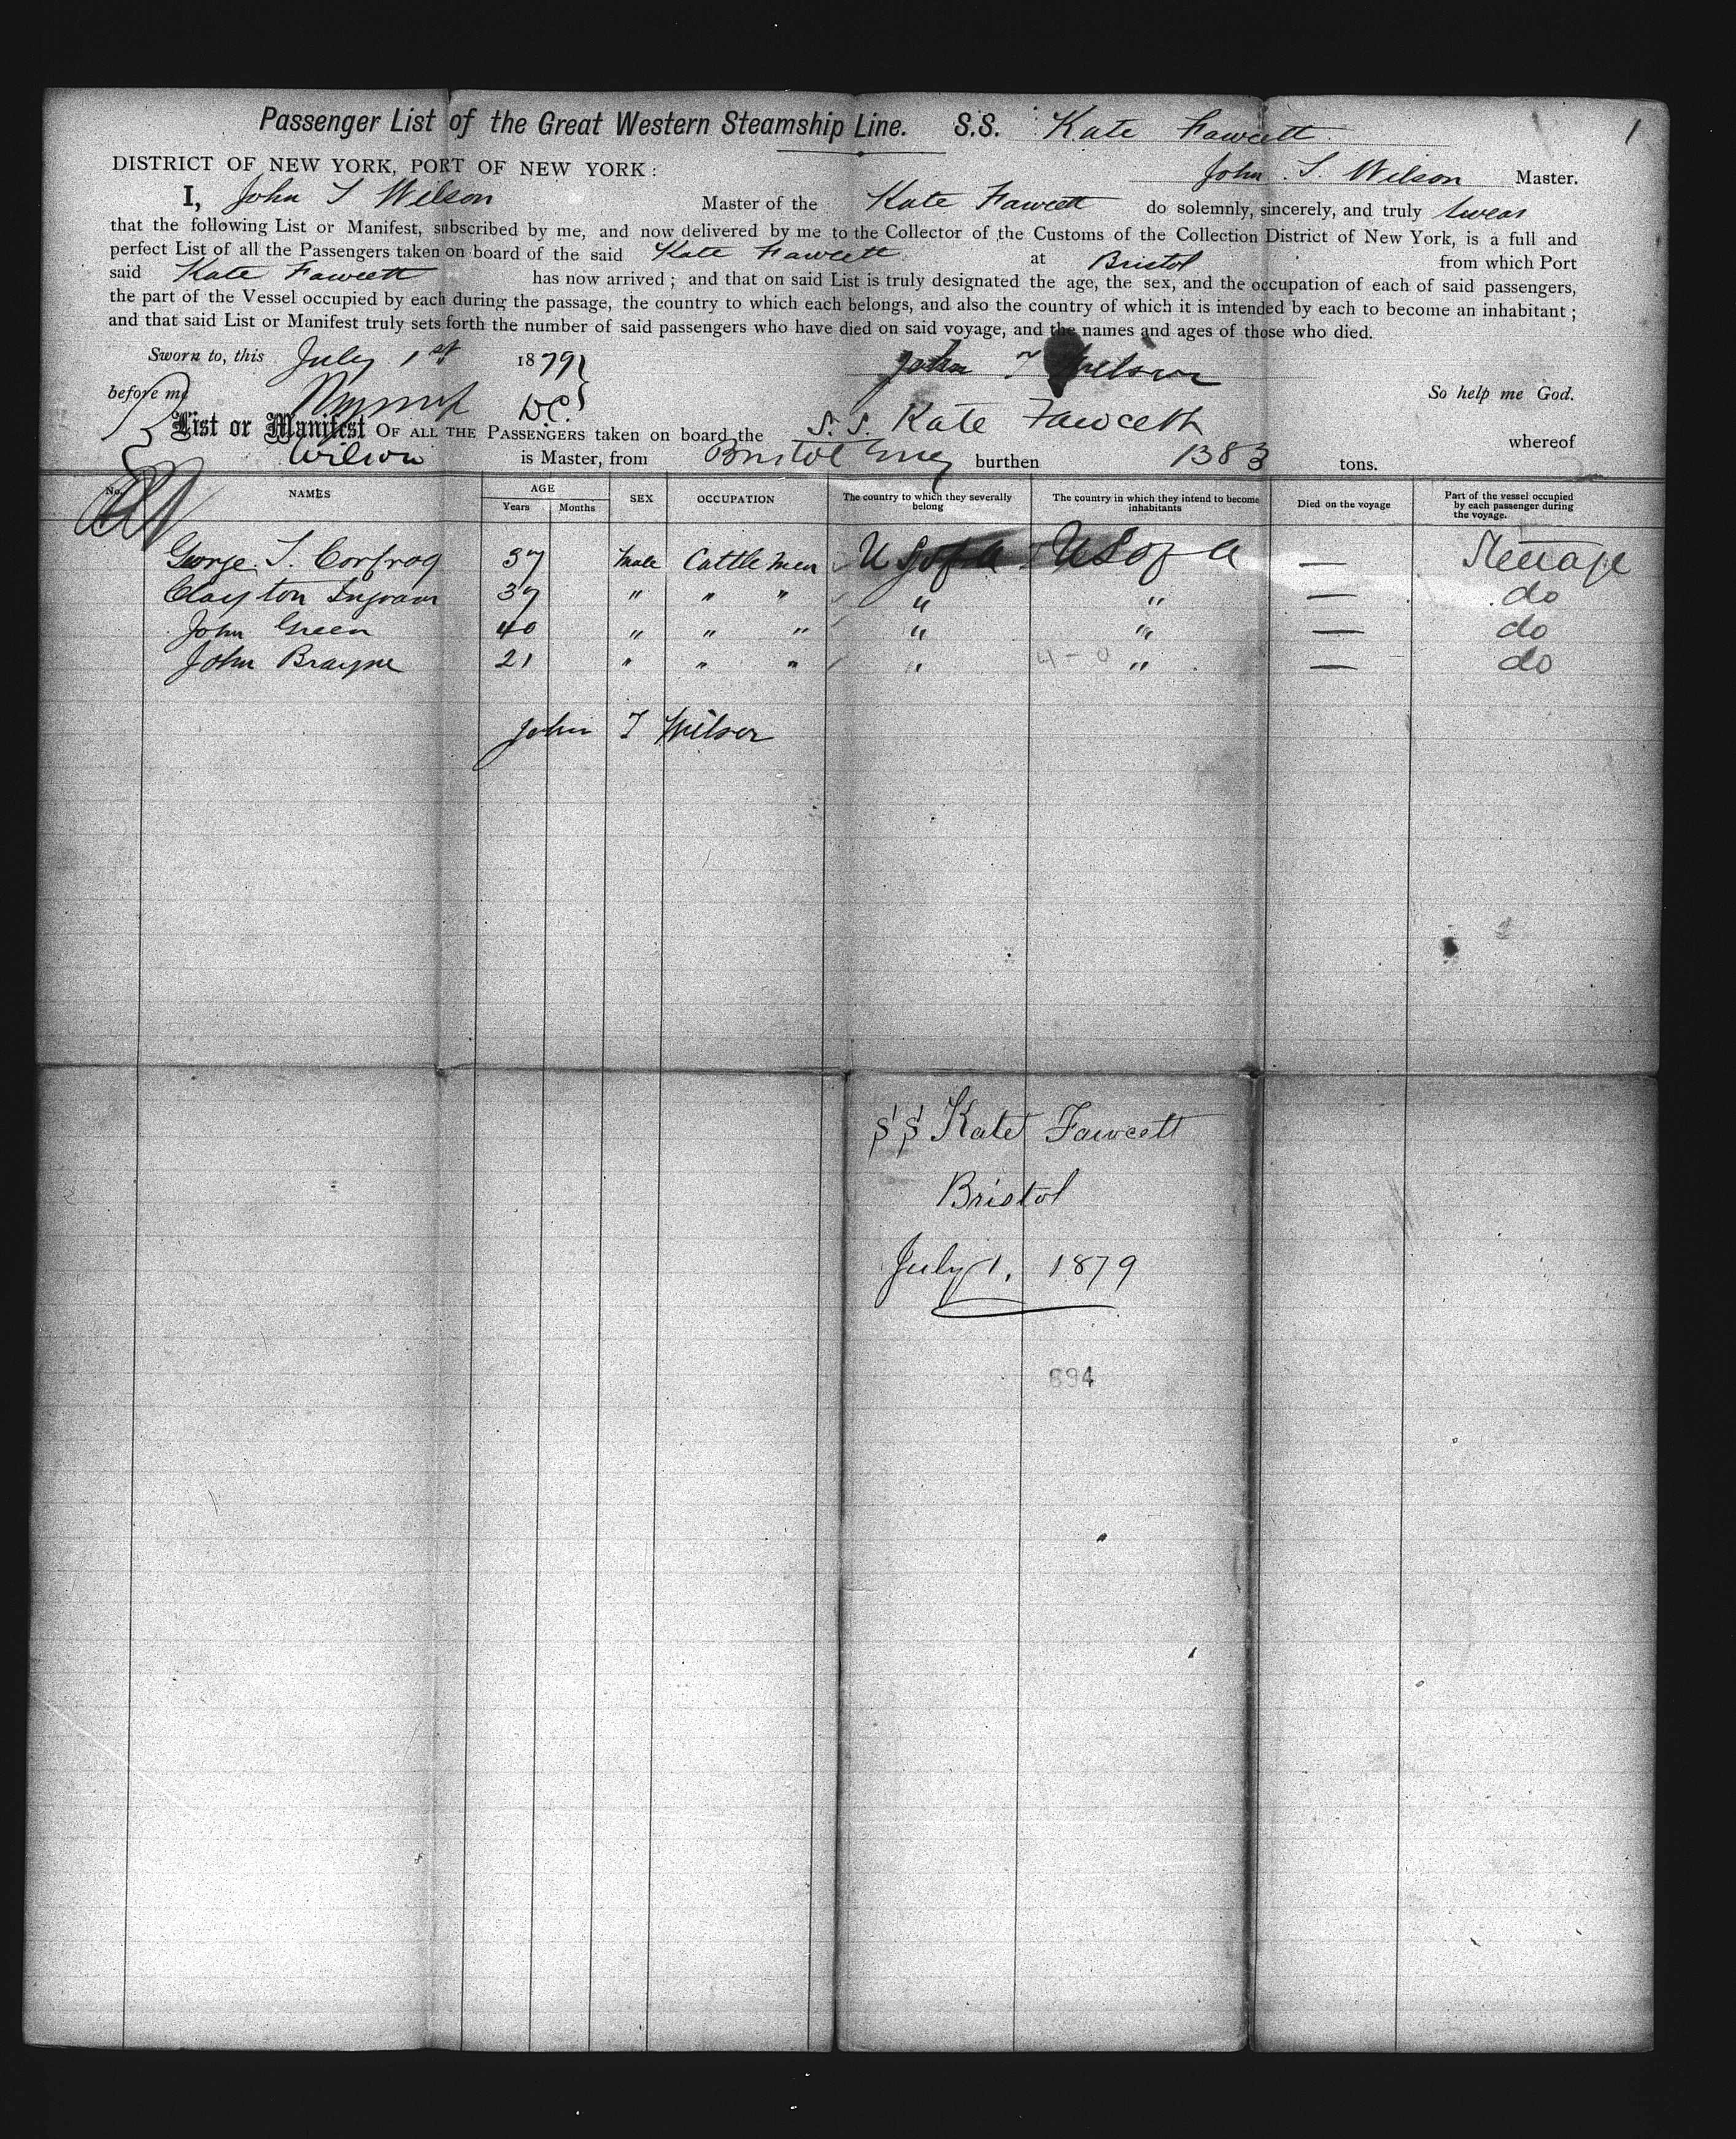 Passenger List of the Great Western Steamship Line. S.S. Kate Fawcett 1
DISTRICT OF NEW YORK, PORT OF NEW YORK: John T. Wilson Master.
I, John T Wilson Master of the Kate Fawcett do solemnly, sincerely, and truly swear
that the following List or Manifest, subscribed by me, and now delivered by me to the Collector of the Customs of the Collection District of New York, is a full and
perfect List of all the Passengers taken on board of the said Kate Fawcett at Bristol from which Port
said Kate Fawcett has now arrived; and that on said List is truly designated the age, the sex, and the occupation of each of said passengers,
the part of the Vessel occupied by each during the passage, the country to which each belongs, and also the country of which it is intended by each to become an inhabitant;
and that said List or Manifest truly sets forth the number of said passengers who have died on said voyage, and the names and ages of those who died.
Sworn to, this July 1st 1879 John T Wilson
before me So help me God.
List or Manifest OF ALL THE PASSENGERS taken on board the S.S. Kate Fawcett whereof
Wilson is Master, from Bristol Eng burthen 1383 tons.
No. NAMES AGE Years Months SEX OCCUPATION The country to which they severally belong The country in which they intend to become inhabitants Died on the voyage Part of the vessel occupied by each passenger during the voyage.
George T. 37 Male Cattle Men U S of A U S of A — Steerage
Clayton Ingram 37 " " " " " — do
John Green 40 " " " " " — do
John Brayne 21 " " " " 4-0 " — do
John T Wilson
SS Kate Fawcett
Bristol
July 1, 1879
694